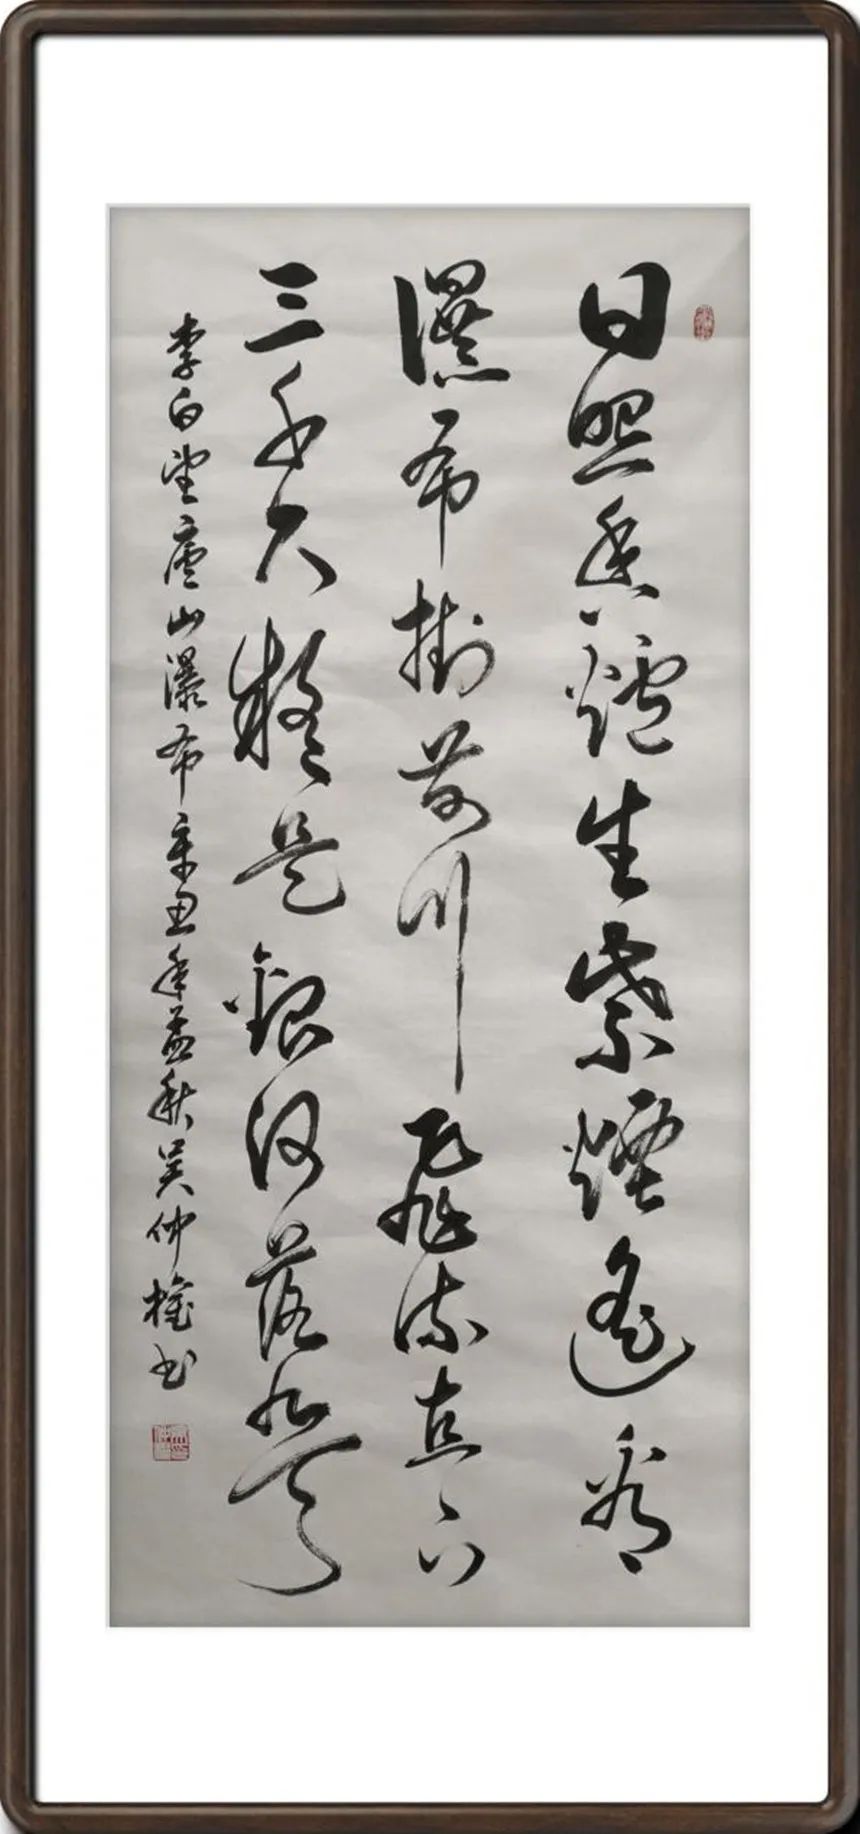 日照香爐生紫煙遙看
瀑布掛前川飛流直下
三千尺疑是銀河落九天
李白望廬山瀑布辛丑年孟秋吴仲權书